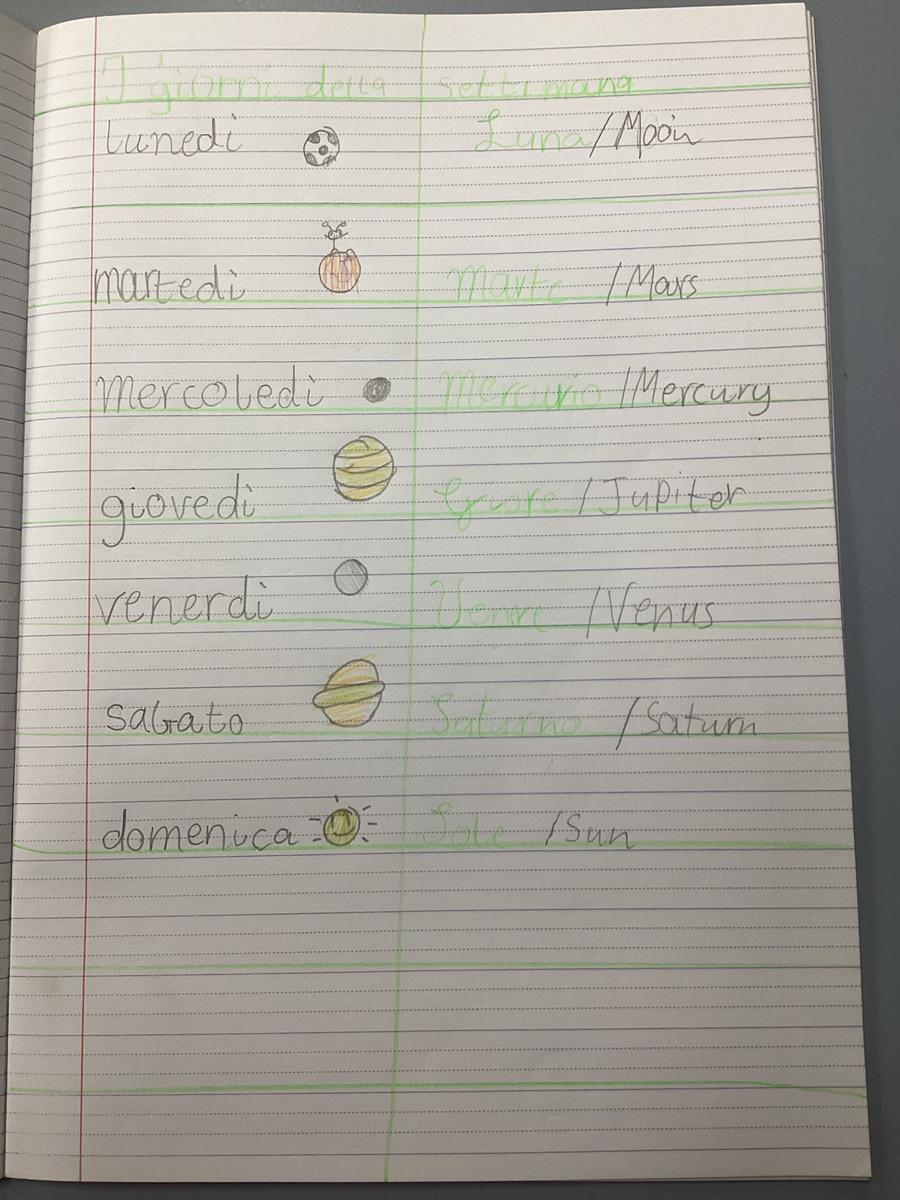 I giorni della settimana
lunedi Luna/Moon
martedi Marte /Mars
mercoledi Mercurio /Mercury
giovedi Giove /Jupiter
venerdi Venere /Venus
sabato Saturno /Saturn
domenica Sole /Sun